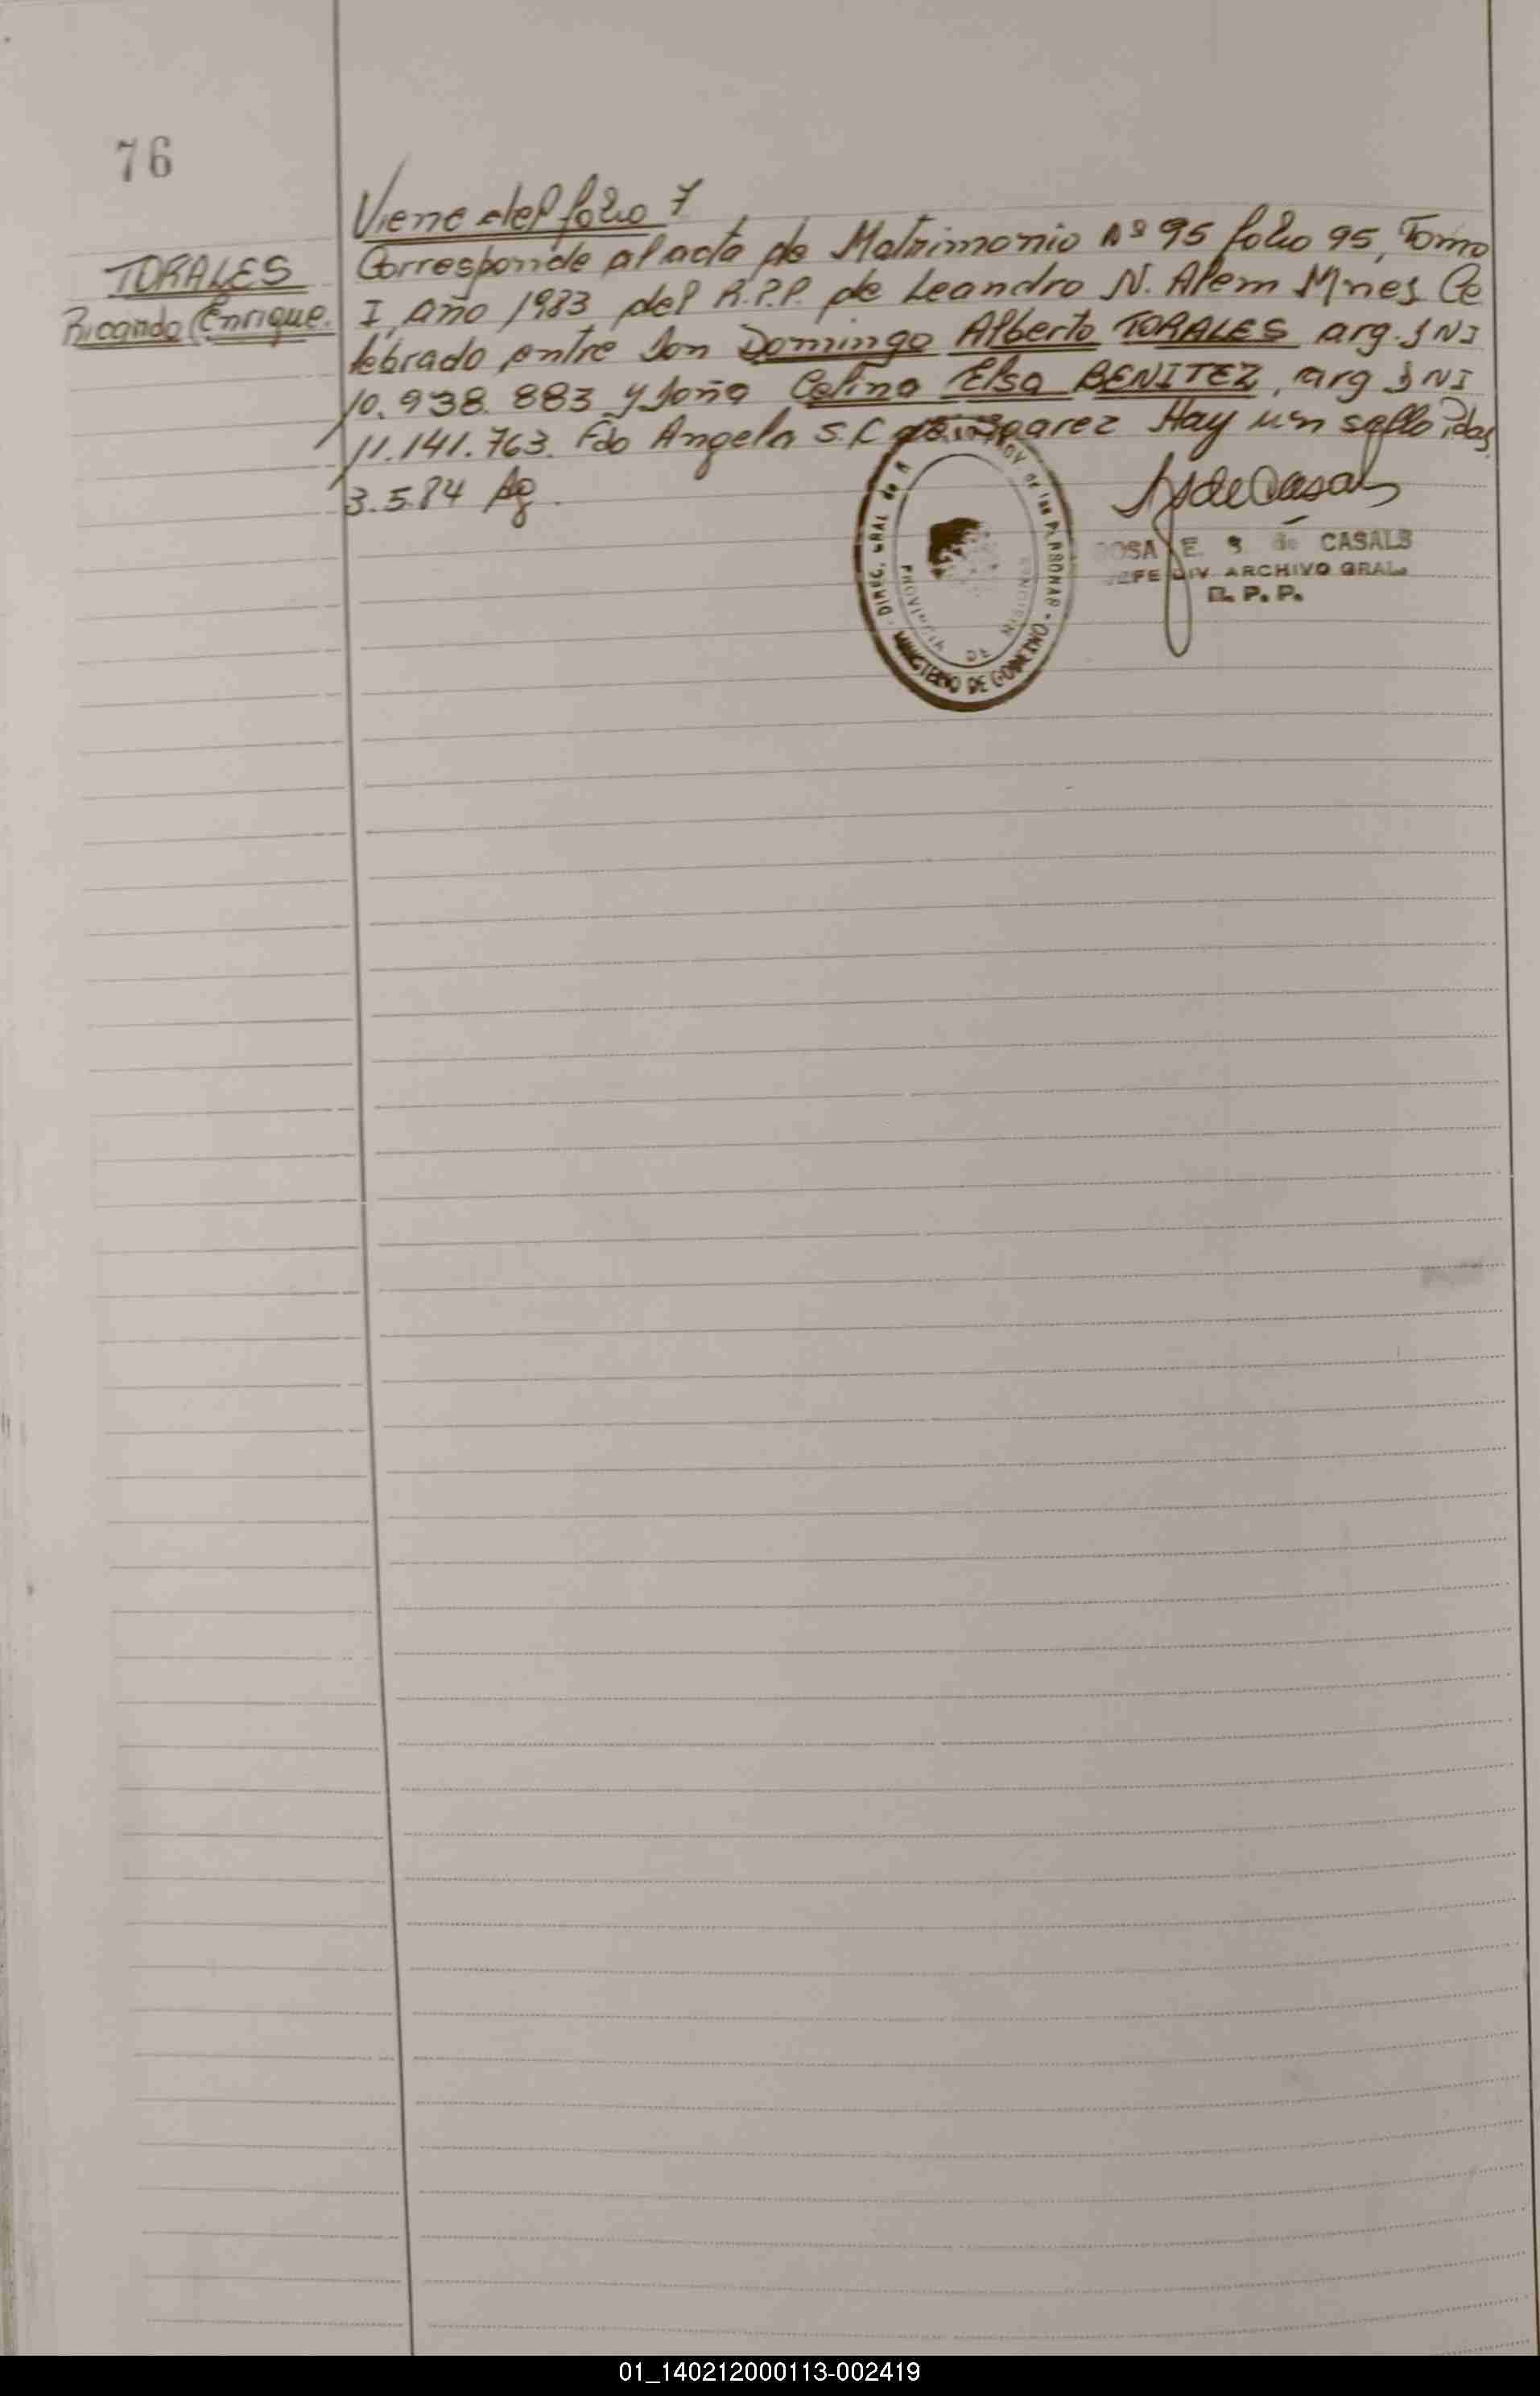 76
Viene del folio 7
TORALES
Ricardo Enrique.
Corresponde al acta de Matrimonio Nº 95 folio 95, Tomo
I, año 1983 del R.P.P. de Leandro N. Alem Mnes. Ce
lebrado entre Don Domingo Alberto TORALES arg. DNI
10.938.883 y Doña Celina Elsa BENITEZ, arg DNI
11.141.763. Fdo Angela S. C de Hay un sello Pdas
3.5.84 Ag.
DIREC. GRAL de las PERSONAS - MINISTERIO DE GOBIERNO -
PROVINCIA DE MISIONES
ROSA E. S. de CASALS
JEFE DIV. ARCHIVO GRAL.
R. P. P.
01_140212000113-002419